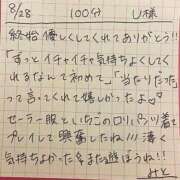 8/28 100分 U様
終始優しくしてくれてありがとう!!
「ずっとイチャイチャ気持ちよくしてく
れるなんて初めて」「当たりだった」
って言ってくれて嬉しかったよ♡
セーラー服といちごのロリ 着て
プレイして興奮したね!!! 凄く
気持ちよかった また遊ぼうね!!
みと